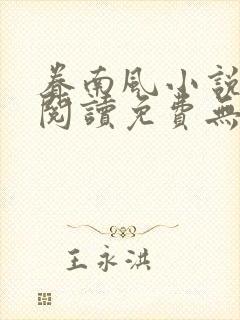 眷南風小說
閱讀免費無
王永洪